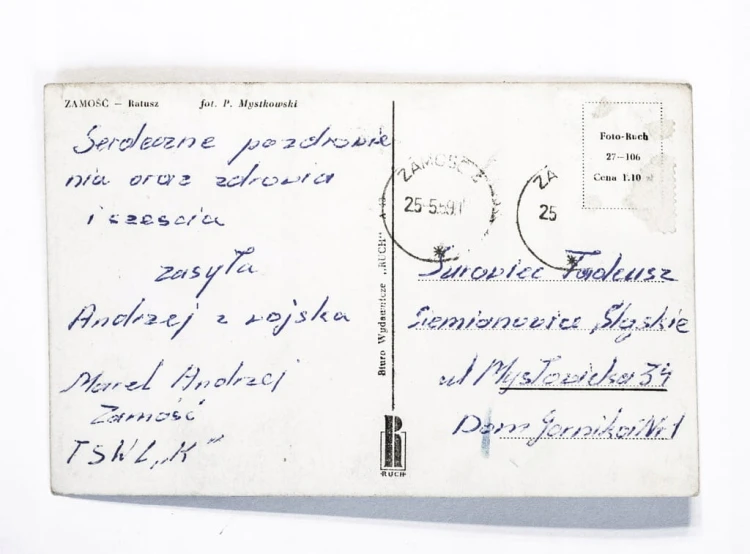 ZAMOŚĆ — Ratusz fot. P. Mystkowski
Serdeczne pozdrowie
nia oraz zdrowia
i szcześcia
zasyła
Andrzej z wojska
Marel Andrzej
Zamość
TSWL „K”
Biuro Wydawnicze „RUCH”
RUCH
ZAMOŚĆ 2
25-5.59
ZA
25
Foto-Ruch
27—106
Cena 1.10 zł
Surowiec Tadeusz
Siemianowice Śląskie
ul Mysłowicka 34
Dom Górnika Nr 1